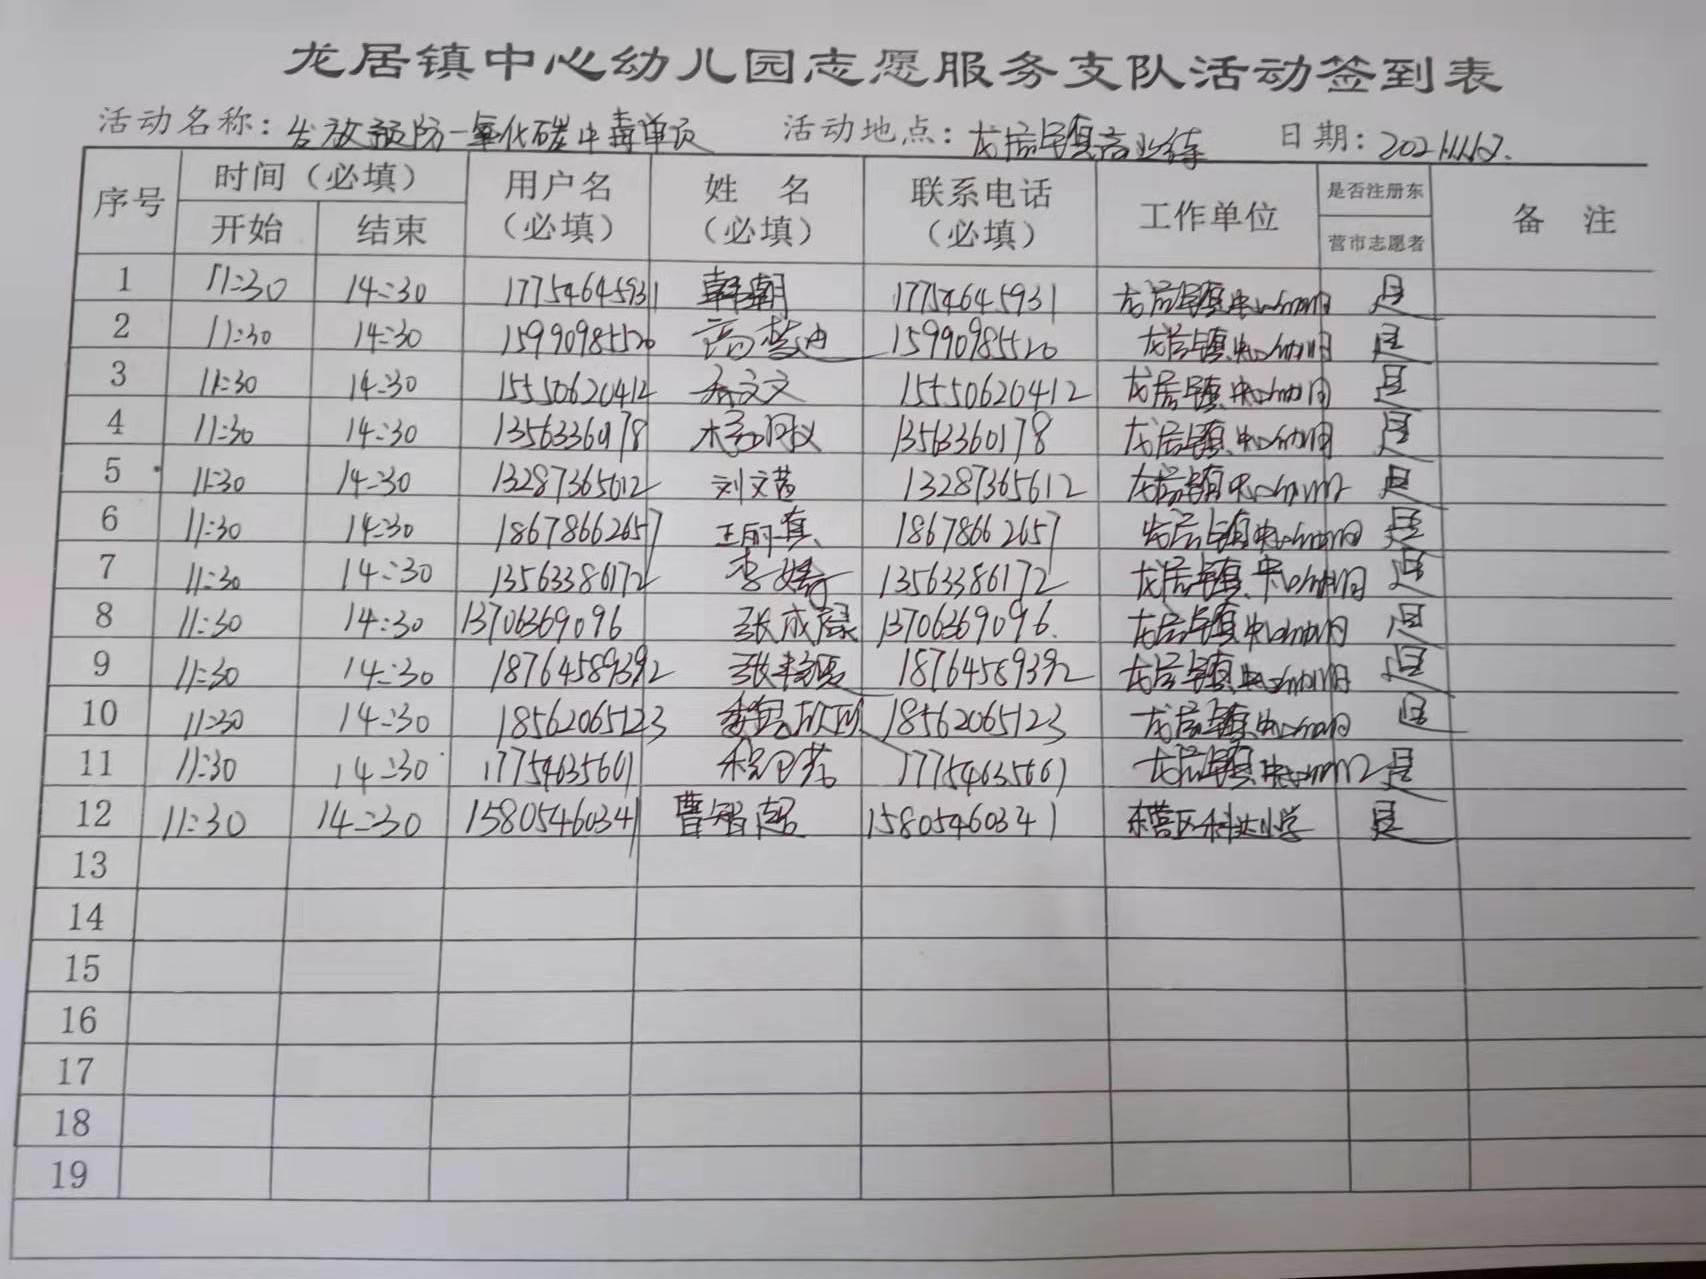 龙居镇中心幼儿园志愿服务支队活动签到表
活动名称：发放预防一氧化碳中毒单页 活动地点：龙居镇商业街 日期：2021.11.12.
序号 时间（必填） 用户名（必填） 姓 名（必填） 联系电话（必填） 工作单位 是否注册东营市志愿者 备 注
开始 结束
1 11:30 14:30 17754645931 韩朝 17754645931 龙居镇中心幼儿园 是
2 11:30 14:30 15990985520 高梦迪 15990985520 龙居镇中心幼儿园 是
3 11:30 14:30 15550620412 文文 15550620412 龙居镇中心幼儿园 是
4 11:30 14:30 13563360178 13563360178 龙居镇中心幼儿园 是
5 11:30 14:30 13287365612 刘文茜 13287365612 龙居镇中心幼儿园 是
6 11:30 14:30 18678662657 王丽真 18678662657 龙居镇中心幼儿园 是
7 11:30 14:30 13563386172 李婷 13563386172 龙居镇中心幼儿园 是
8 11:30 14:30 13706369096 张成禄 13706369096 龙居镇中心幼儿园 是
9 11:30 14:30 18764589392 张 18764589392 龙居镇中心幼儿园 是
10 11:30 14:30 18562065123 18562065123 龙居镇中心幼儿园 是
11 11:30 14:30 17754635661 17754635661 龙居镇中心幼儿园 是
12 11:30 14:30 15805460341 曹智超 15805460341 东营区科达小学 是
13
14
15
16
17
18
19